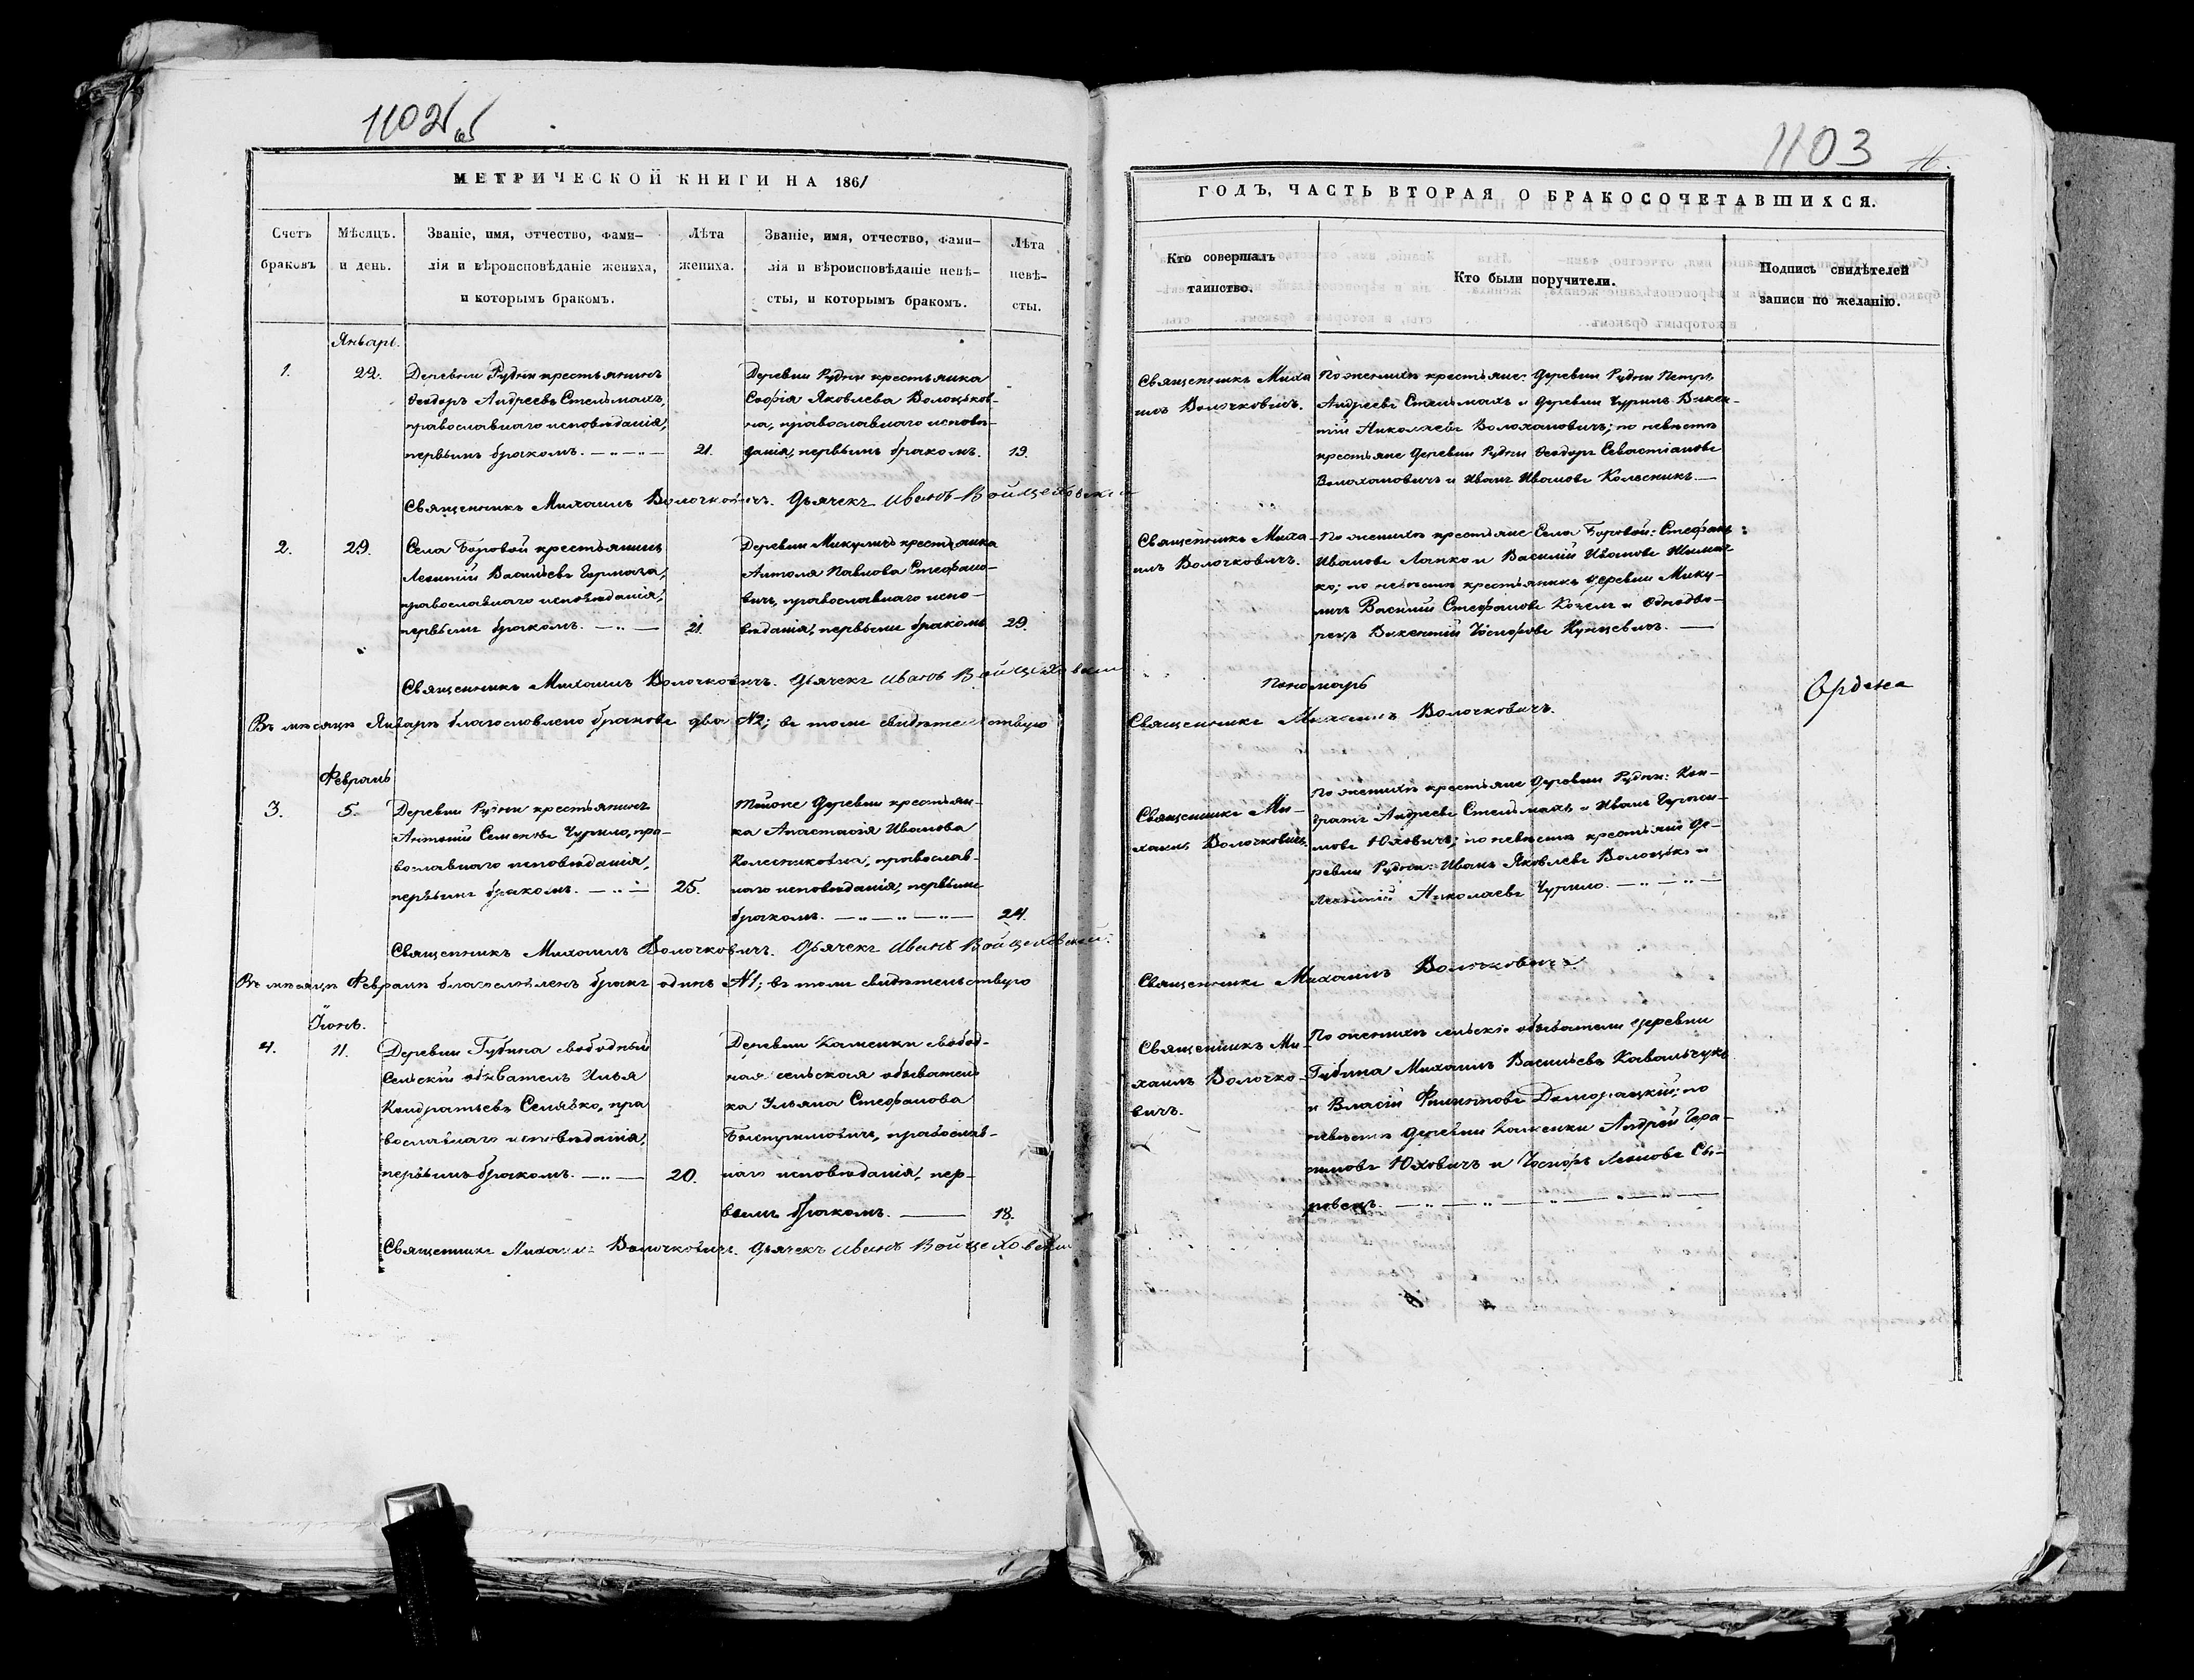 1102об
МЕТРИЧЕСКОЙ КНИГИ НА 1861
Счетъ браковъ
Мѣсяцъ. и день.
Званіе, имя, отчество, фами-
лія и вѣроисповѣданіе жениха,
и которымъ бракомъ.
Лѣта жениха.
Званіе, имя, отчество, фами-
лія и вѣроисповѣданіе невѣ-
сты, и которымъ бракомъ.
Лѣта невѣ-
сты.
Январь.
1.
22.
Деревни Рудни крестьянинъ
Ѳеодоръ Андреевъ Стельмахъ,
православнаго исповѣданія,
первымъ бракомъ.
21.
Деревни Рудни крестьянка
Софія Яковлева Волоцьков-
на, православнаго исповѣ-
данія, первымъ бракомъ.
19.
Священникъ Михаилъ Волочковичъ. Дьячекъ Иванъ Войцеховскій
2.
29.
Села Боровой крестьянинъ
Леонтій Васильевъ
православнаго исповѣданія,
первымъ бракомъ.
21.
Деревни Микуличъ крестьянка
Антоля Павлова Стефано-
вичъ, православнаго испо-
вѣданія, первымъ бракомъ
29.
Священникъ Михаилъ Волочковичъ. Дьячекъ Иванъ Войцеховскій
Въ мѣсяцѣ Январѣ благословлено браковъ два №2; въ томъ свидѣтельствую
Февраль
3.
5.
Деревни Рудни крестьянинъ
Антоній Семеновъ Чурило, пра-
вославнаго исповѣданія,
первымъ бракомъ.
25.
Тойже деревни крестьян-
ка Анастасія Иванова
Колесниковна, православ-
наго исповѣданія, первымъ
бракомъ.
24.
Священникъ Михаилъ Волочковичъ. Дьячекъ Иванъ Войцеховскій.
Въ мѣсяцѣ Февралѣ благословленъ бракъ одинъ №1; въ томъ свидѣтельствую
Іюнь.
4.
11.
Деревни Губина свободный
Сельскій обыватель Илья
Кондратьевъ Семявко, пра
вославнаго исповѣданія,
первымъ бракомъ.
20.
Деревни Каменки свобод-
ная сельская обыватель
ка Ульяна Стефанова
православ-
наго исповѣданія, пер-
вымъ бракомъ.
18.
Священникъ Михаилъ Волочковичъ. Дьячекъ Иванъ Войцеховскій
1103
ГОДЪ, ЧАСТЬ ВТОРАЯ О БРАКОСОЧЕТАВШИХСЯ.
Кто совершалъ
таинство.
Кто были поручители.
Подпись свидѣтелей
записи по желанію.
Священникъ Миха
илъ Волочковичъ.
По женихѣ крестьяне: деревни Рудни Петръ
Андреевъ Стельмахъ и деревни Чурилъ Викен-
тій Николаевъ Волоханович; по невѣстѣ
крестьяне деревни Рудни Ѳеодоръ Севастіановъ
Волохановичъ и Иванъ Ивановъ Колесникъ
Священникъ Миха-
илъ Волочковичъ.
По женихѣ крестьяне Села Боровой: Стефанъ
Ивановъ Лапко и Василій Ивановъ
ко; по невѣстѣ крестьянинъ деревни Мику-
личъ Василій Стефановъ и Однодво-
рецъ Викентій Іосифовъ Кунцевичъ.
Пономарь
Ордена
Священникъ Михаилъ Волочковичъ.
Священникъ Ми-
хаилъ Волочковичъ.
По женихѣ крестьяне деревни Рудни: Кон-
дратъ Андреевъ Стельмахъ и Иванъ Гераси-
мовъ Юховичъ; по невѣстѣ крестьяне де-
ревни Рудни: Иванъ Яковлевъ Волоцько и
Леонтій Николаевъ Чурило.
Священникъ Михаилъ Волочковичъ.
Священникъ Ми-
хаилъ Волочко-
вичъ.
По женихѣ сельскіе обыватели деревни
Губина Михаилъ Васильевъ Ковальчукъ
и Власій Филиповъ Домарацкій; по
невѣстѣ деревни Каменки Андрей Гера-
симовъ Юховичъ и Іосифъ Леоновъ Сы-
ровецъ.